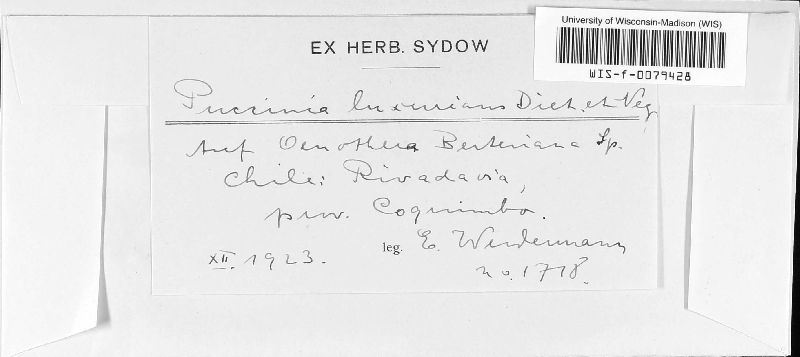 University of Wisconsin-Madison (WIS)
WIS-f-0079428
EX HERB. SYDOW
Puccinia luxurians Diet. et Neg.
Auf Oenothera Berteriana Sp.
Chile: Rivadavia,
prov. Coquimbo.
leg. E. Werdermann
XII. 1923.
no. 1718.